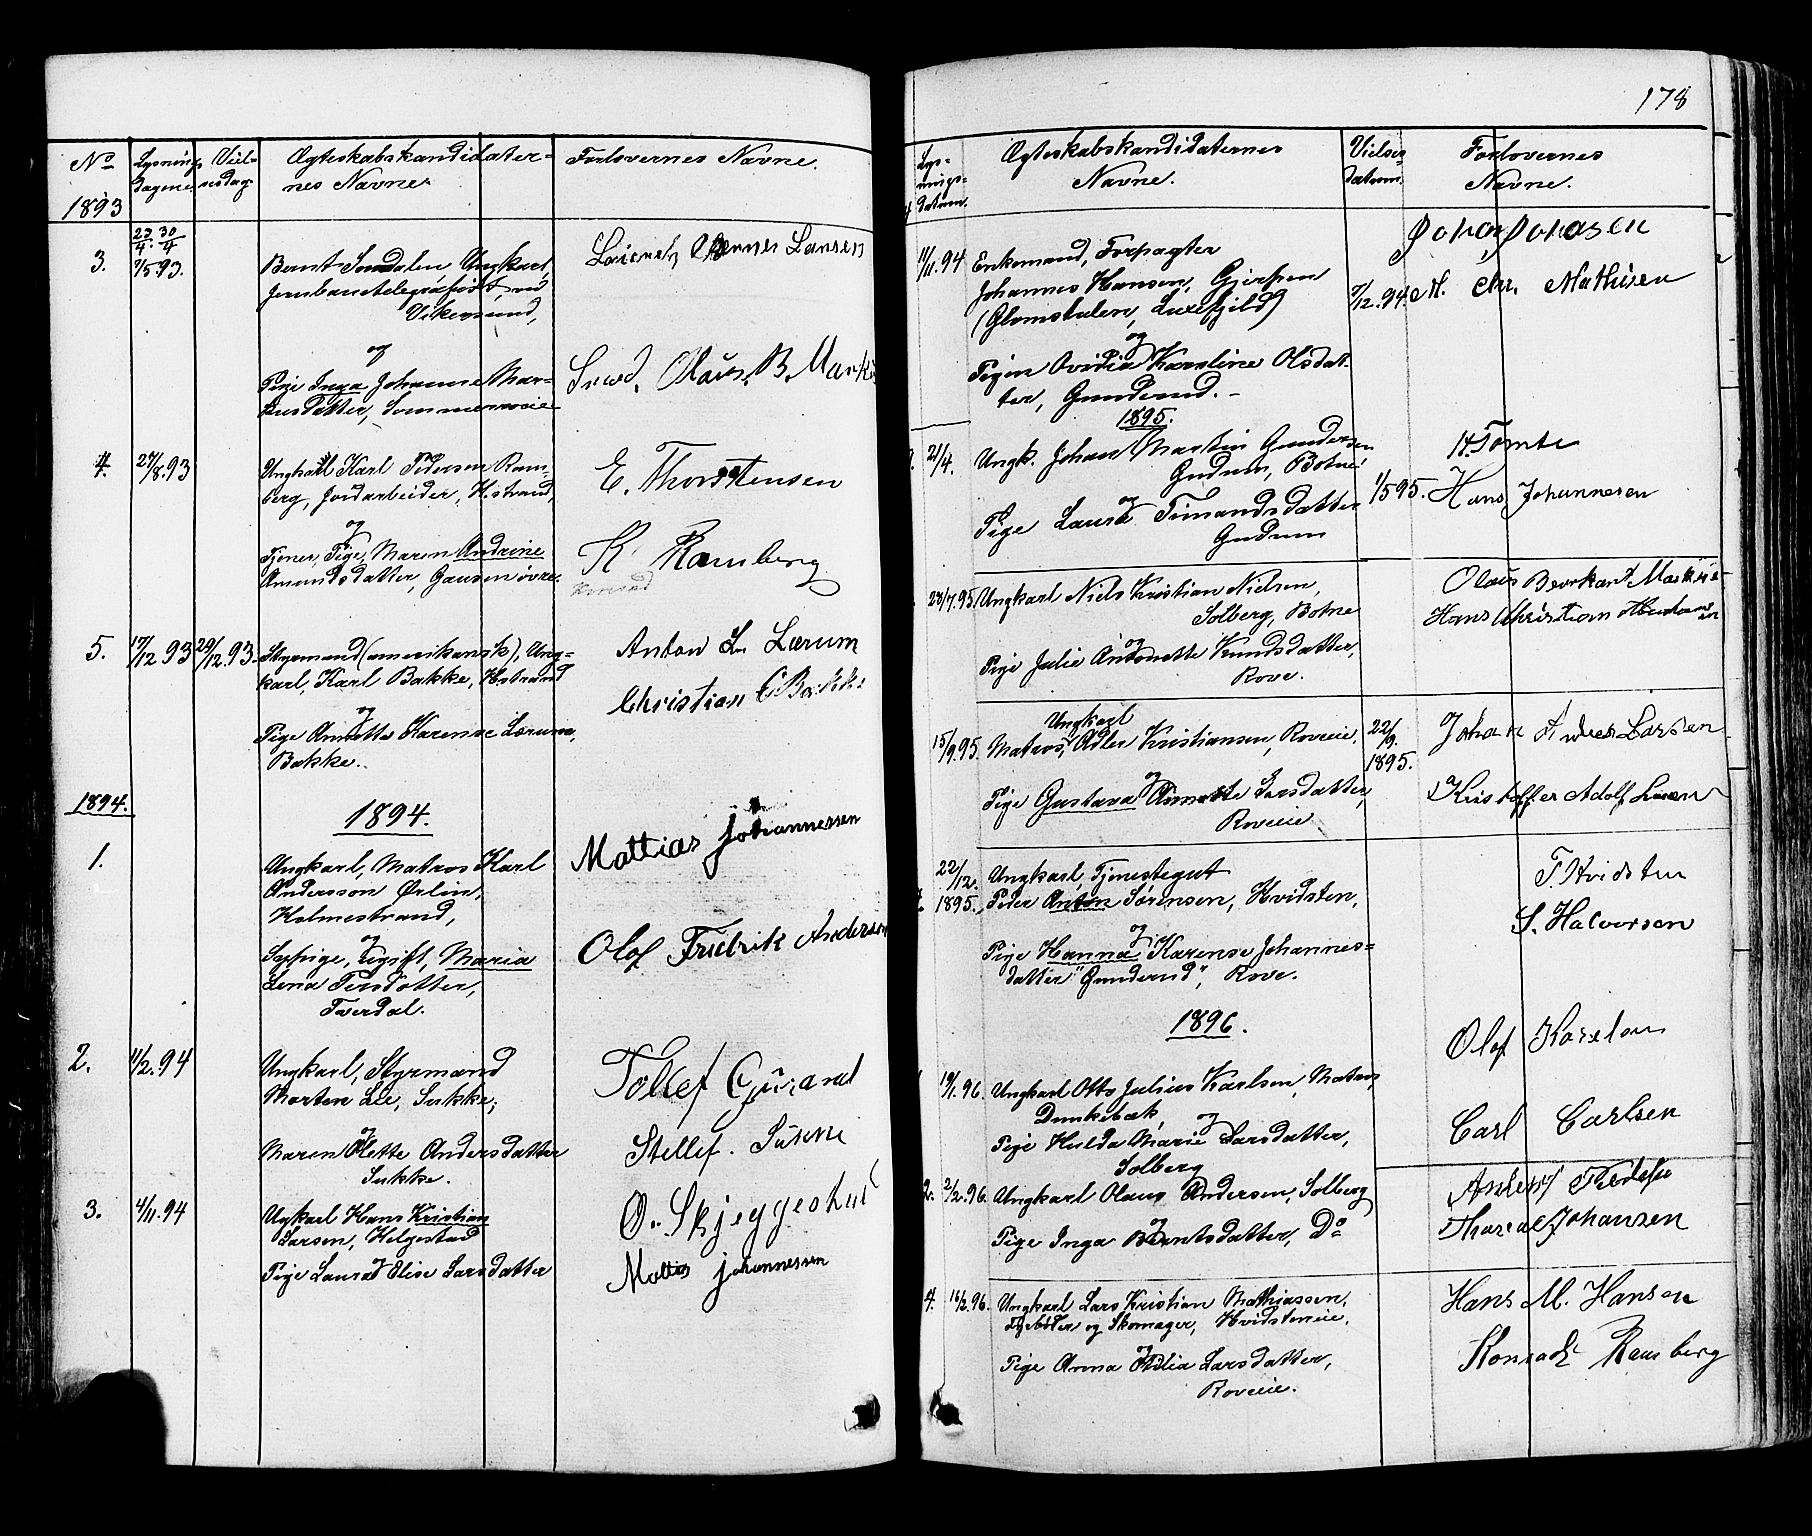 No
Lysnings
dagene
Viel-
sesdag
Ægteskabskandidater-
nes Navne
Forlovernes Navne.
1893
3.
23/4. 30/4
7/5 93.
Bernt Ungkarl,
Jernbanetelegrafist, ved
Vikersund,
og
Pige Inga Johanne Mar-
Larsen
Olaus B.
4.
27/8.93
Ungkarl Karl Pedersen Ram-
berg, Jordarbeider, H.strand,
og
Tjener, Pige, Maren Andrine
Amundsdatter, Gausen øvre.
E. Thorstensen
K Ramberg
Konrad
5.
17/12 93
29/12.93.
Styrmand (amerikansk), Ung-
karl, Karl Bakke, H.strand
og
Pige Annette Karense Lærum,
Bakke.
Anton Lærum
Christian Bakke
1894.
1894.
1.
Ungkarl, Matros Karl
Andersson Ørlin,
Holmestrand,
og
Sypige, Ugift, Maria
Lena Persdotter,
Mattias Johannessen
Olof Fredrik Anderson
2.
11/2.94
Ungkarl, Styrmand
Morten Lie, Sukke,
og
Maren Olette Andersdatter
Sukke.
Tollef
Stellef.
3.
4/11.94
Ungkarl Hans Kristian
Larsen, Helgestad
og
Pige Laura Elise Larsdatter
O. Skjeggestad
Mattis Johannessen
178
Lys-
nings-
datum.
Ægteskabskandidaternes
Navne.
Vielses
datum.
Forlovernes
Navne.
11/11.94
Enkemand, Forpagter
Johannes Hansen, Gjerpen
(Glomstulen, Luxefjeld)
og
Pigen Ovidia Karoline Olsdat-
ter, Gunderud.
7/12.94
Johan Johasen
M. Chr. Mathisen
1895.
21/4.
Ungk. Johan Martin Gundersen
Gudum, Botne
og
Pige Laura Timandsdatter
Gudum
1/5 95.
H Tomte
Hans Johannesen
28/7.95
Ungkarl Niels Kristian Nielsen,
Solberg, Botne
og
Pige Julie Antonette Knudsdatter,
Rove.
Olaus
Hans Christian
15/9.95.
Ungkarl
Matros, Adler Kristiansen, Roveeie,
og
Pige Gustava Annette Larsdatter,
Roveeie
22/9.
1895.
Johan Larsen
Kristoffer Adolf
22/12.
1895.
Ungkarl, Tjenestegut
Peder Anton Sørensen, Hvidsten,
og
Pige Hanna Karense Johannes-
datter "Gunderud", Rove.
T. Hvidsten
S. Halvorsen
1896.
19/1.96.
Ungkarl Otto Julius Karlsen, Matros
Dunkebæk,
og
Pige Hulda Marie Larsdatter,
Solberg
Olof
Carl Carlsen
2.
2/2.96.
Ungkarl Olaus Andersen, Solberg
og
Pige Inga Berntsdatter, Do
Johansen
4.
16/2.96.
Ungkarl Lars Kristian Mathiassen,
og Skomager, Hvidsteneie,
og
Pige Anna Otilia Larsdatter,
Roveeie.
Hans M. Hansen
Konrad Ramberg